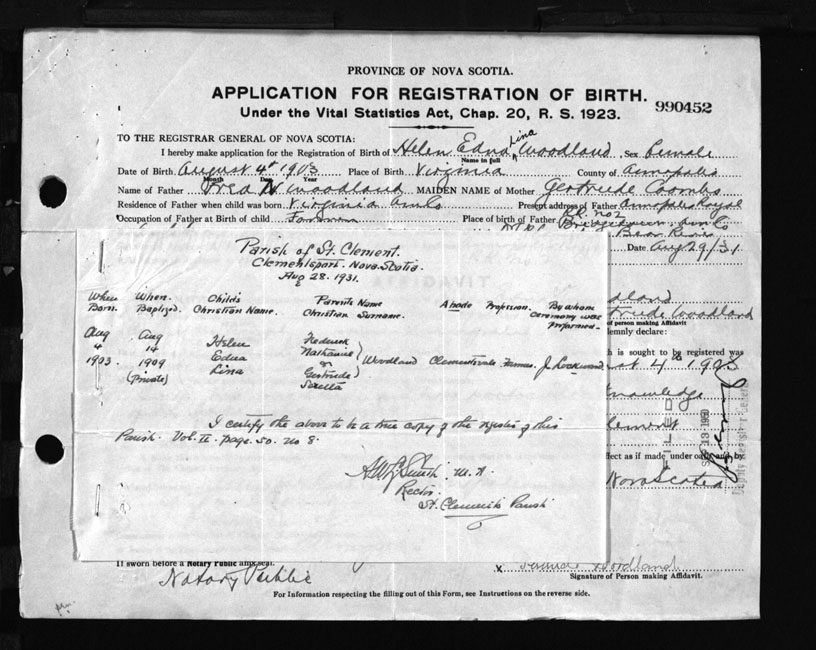 PROVINCE OF NOVA SCOTIA.
APPLICATION FOR REGISTRATION OF BIRTH.
990452
Under the Vital Statistics Act, Chap. 20, R. S. 1923.
TO THE REGISTRAR GENERAL OF NOVA SCOTIA:
Lina
I hereby make application for the Registration of Birth of Helen Edna Woodland, Sex female
Name in full
Date of Birth August 4th 1903 Place of Birth Virginia County of Annapolis
Month Day Year
Name of Father Fred N Woodland MAIDEN NAME of Mother Gertrude Coombs
Residence of Father when child was born Virginia Present address of Father Annapolis Royal
R.R. no 2
Occupation of Father at Birth of child Place of birth of Father
Bear River
Date Aug 29/31
Parish of St. Clement.
Clementsport. Nova Scotia.
Aug 28. 1931.
When Born. When Baptized. Child's Christian Name. Parents Name Christian Surname. Abode Profession. By whom ceremony was Performed
Aug 4 1903. Aug 14 1909 (Private) Helen Edna Lina Frederick Nathaniel & Gertrude Woodland Clementsvale Farmer J. Lockward
I certify the above to be a true copy of the register of this
Parish. Vol. II. page. 50. No 8.
Smith. M.A.
Rector
St. Clements Parish
dland
trude Woodland
of person making Affidavit
lemnly declare:
h is sought to be registered was
1903
knowledge
lement
FILED
fect as if made under oath and by
Nova Scotia
If sworn before a Notary Public affix seal.
Notary Public
x Woodland
Signature of Person making Affidavit.
For Information respecting the filling out of this Form, see Instructions on the reverse side.